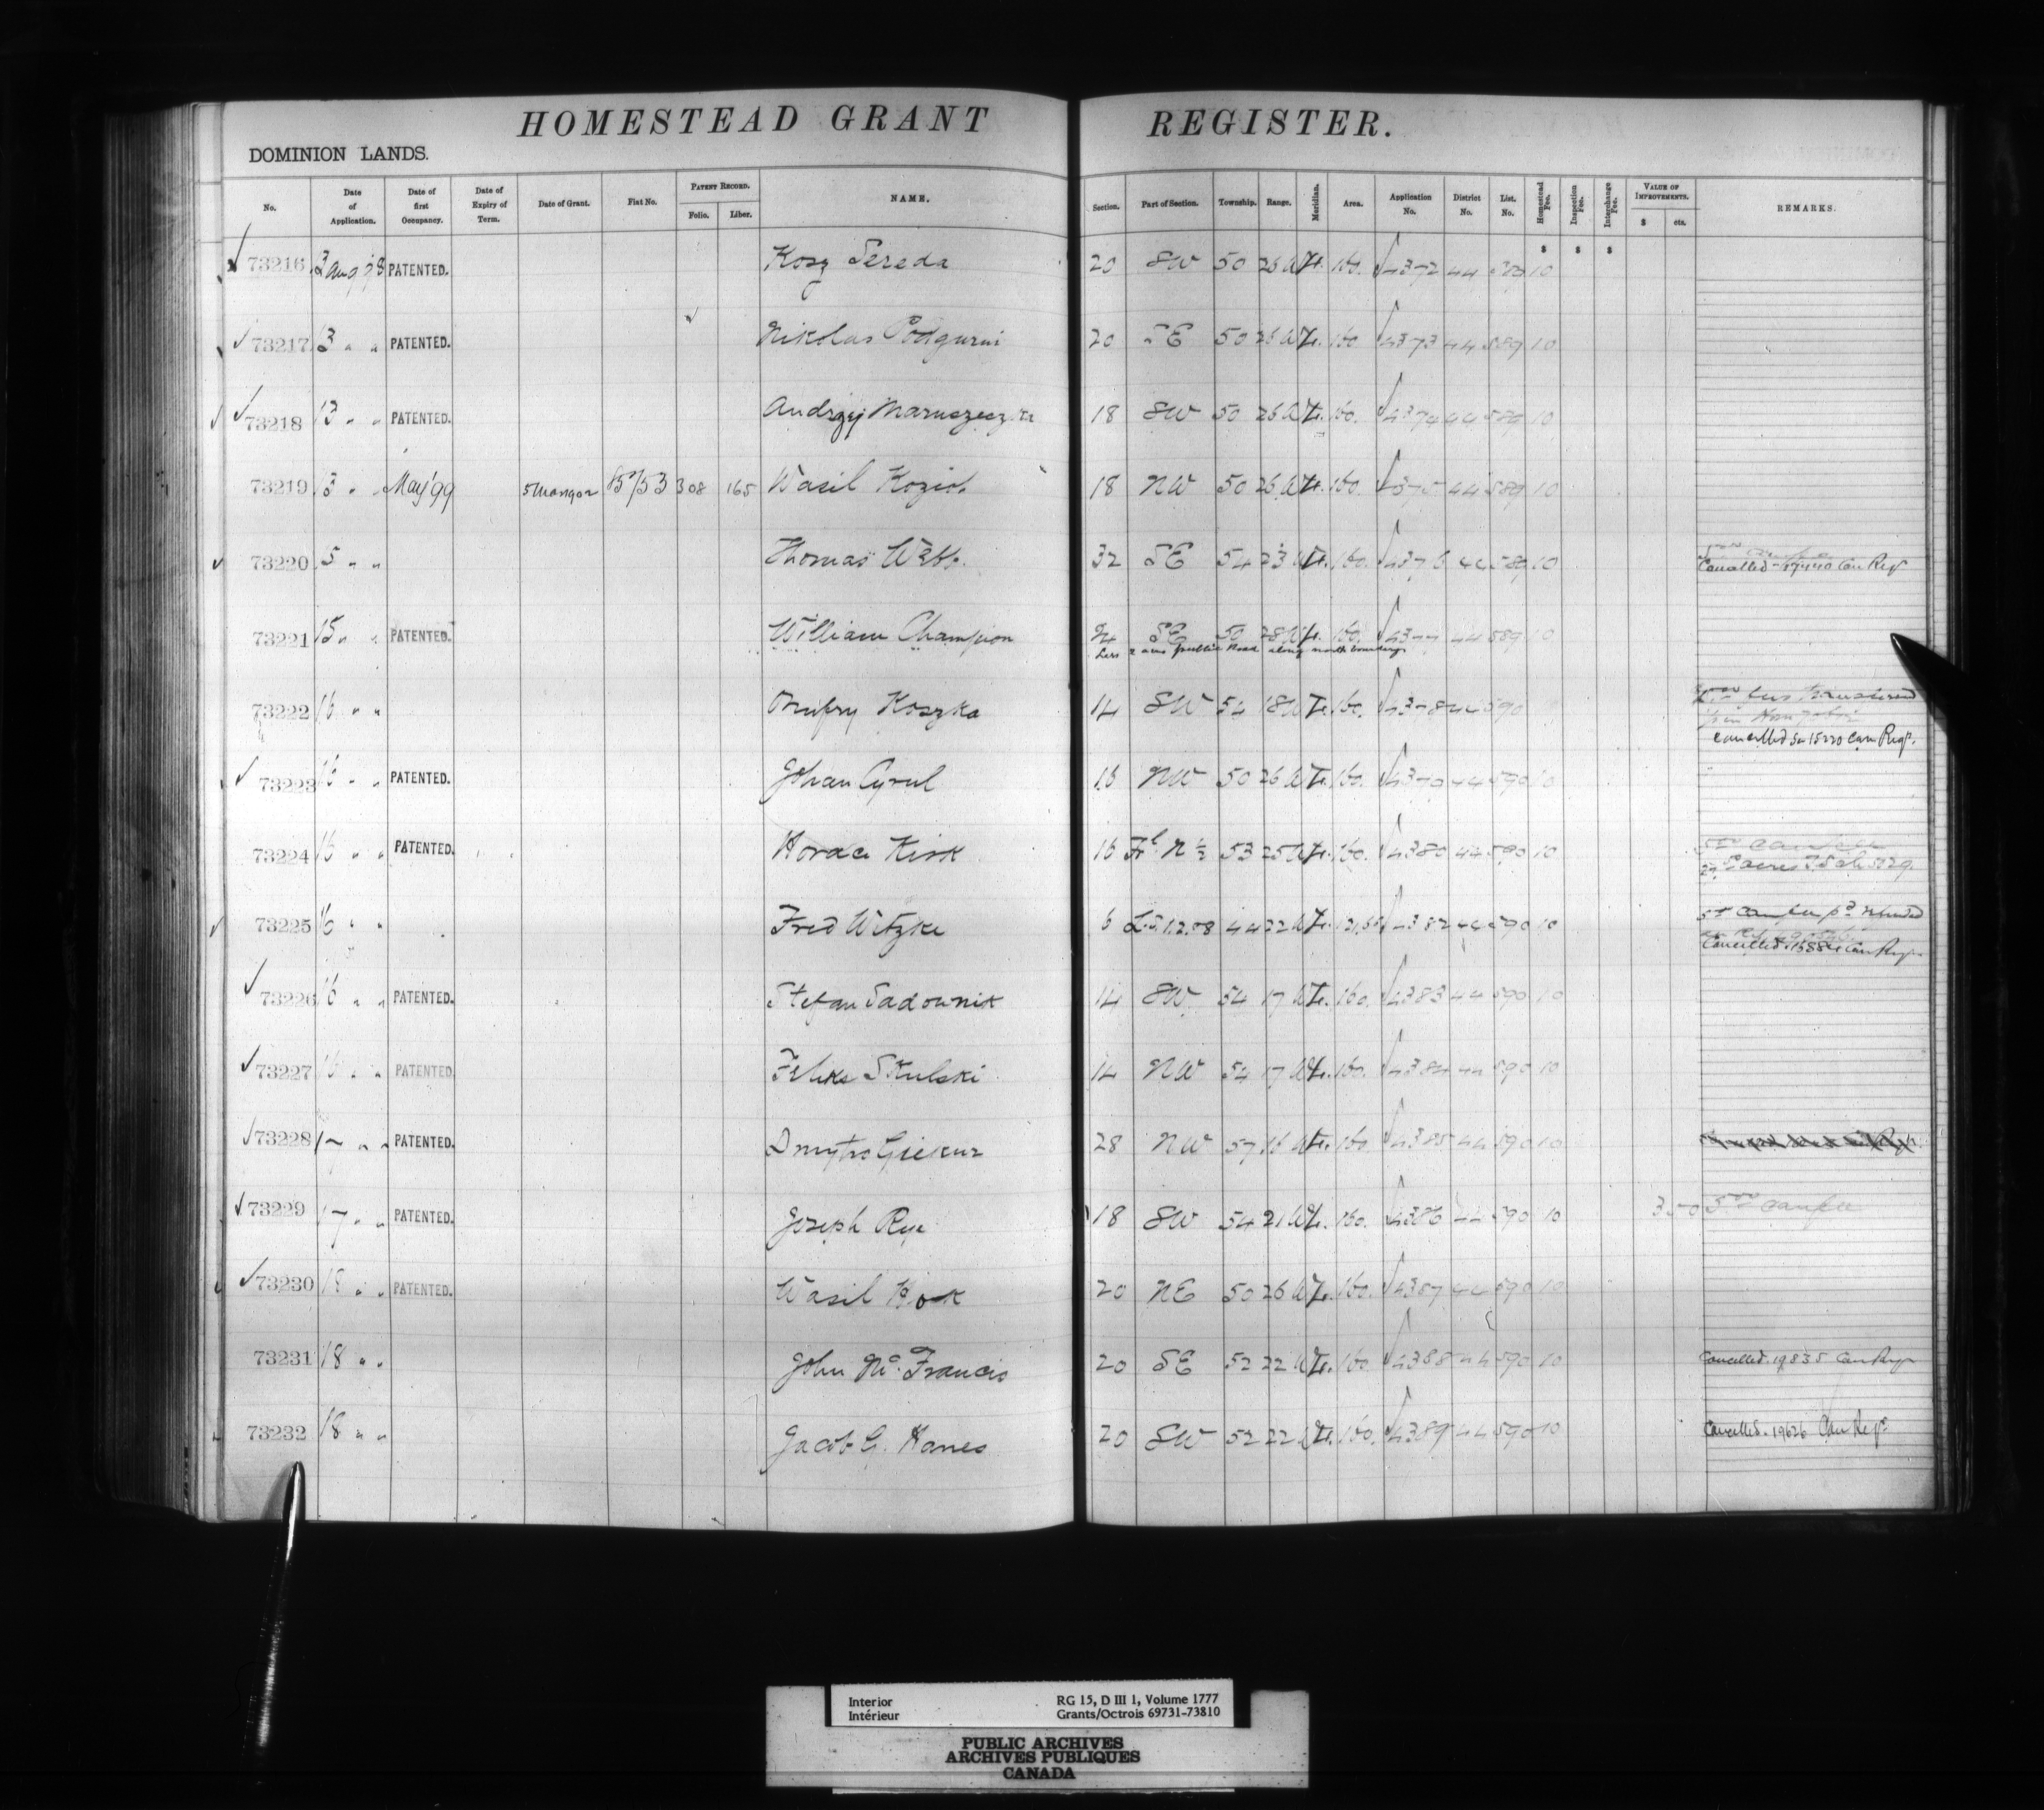 HOMESTEAD GRANT REGISTER.
DOMINION LANDS.
No. Date of Application. Date of first Occupancy. Date of Expiry of Term. Date of Grant. Fiat No. PATENT RECORD. Folio. Liber. NAME. Section. Part of Section. Township. Range. Meridian. Area. Application No. District No. List. No. Homestead Fee. Inspection Fee. Interchange Fee. VALUE OF IMPROVEMENTS. $ cts. REMARKS.
$ $ $
73216 PATENTED. Sereda 20 SW 50 26 W 4. 160. 4372 44 589 10
73217 PATENTED. Nikolas Podgurni 20 SE 50 26 W 4. 160 4373 44 589 10
73218 PATENTED. Andrzej 18 SW 50 26 W 4. 160. 4374 44 589 10
73219 May '99 308 165 Wasil Koziol 18 NW 50 26 W 4. 160. 4375 44 589 10
73220 Thomas Webb. 32 SE 54 23 W 4. 160. 4376 44 589 10
Cancelled Can Reg
73221 PATENTED. William Champion SE 50 28 W 4. 160. 4377 44 589 10
Less 2 acres public Road along north boundary
73222 16 " " Onufry Koszka 14 SW 54 18 W 4. 160. 4378 44 590
cancelled Can Regr.
73223 16 " " PATENTED. Johan Cyrul 16 NW 50 26 W 4. 160. 44 590 10
73224 16 " " PATENTED. Horace Kirk 16 Frl N ½ 53 25 W 4. 160. 4380 44 590 10
73225 16 " " Fred Witzke 6 44 22 W 4. 4382 44 590 10
Cancelled. Can Regr
73226 16 " " PATENTED. Stefan Sadownik 14 SW 54 17 W 4. 160. 4383 44 590 10
73227 16 " " PATENTED. Feliks Skulski 14 NW 54 17 W 4. 160. 4384 44 590 10
73228 17 " " PATENTED. Dmytro 28 NW 57 16 W 4. 160. 4385 44 590 10
73229 17 " " PATENTED. Joseph Rye 18 SW 54 21 W 4. 160. 4386 44 590 10 350
73230 18 " " PATENTED. Wasil 20 NE 50 26 W 4. 160. 4387 44 590 10
73231 18 " " John Mc. Francis 20 SE 52 22 W 4. 160. 4388 44 590 10 Cancelled. 19835 Can Regr
73232 18 " " Jacob G. Hanes 20 SW 52 22 W 4. 160. 4389 44 590 10 Cancelled. 19626 Can Regr.
Interior RG 15, D III 1, Volume 1777
Intérieur Grants/Octrois 69731-73810
PUBLIC ARCHIVES
ARCHIVES PUBLIQUES
CANADA